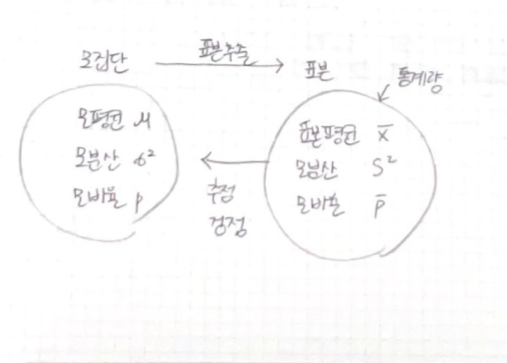 모집단
표본추출
표본
통계량
모평균 μ
모분산 σ²
모비율 p
추정
검정
표본평균 x̄
모분산 S²
모비율 p̄